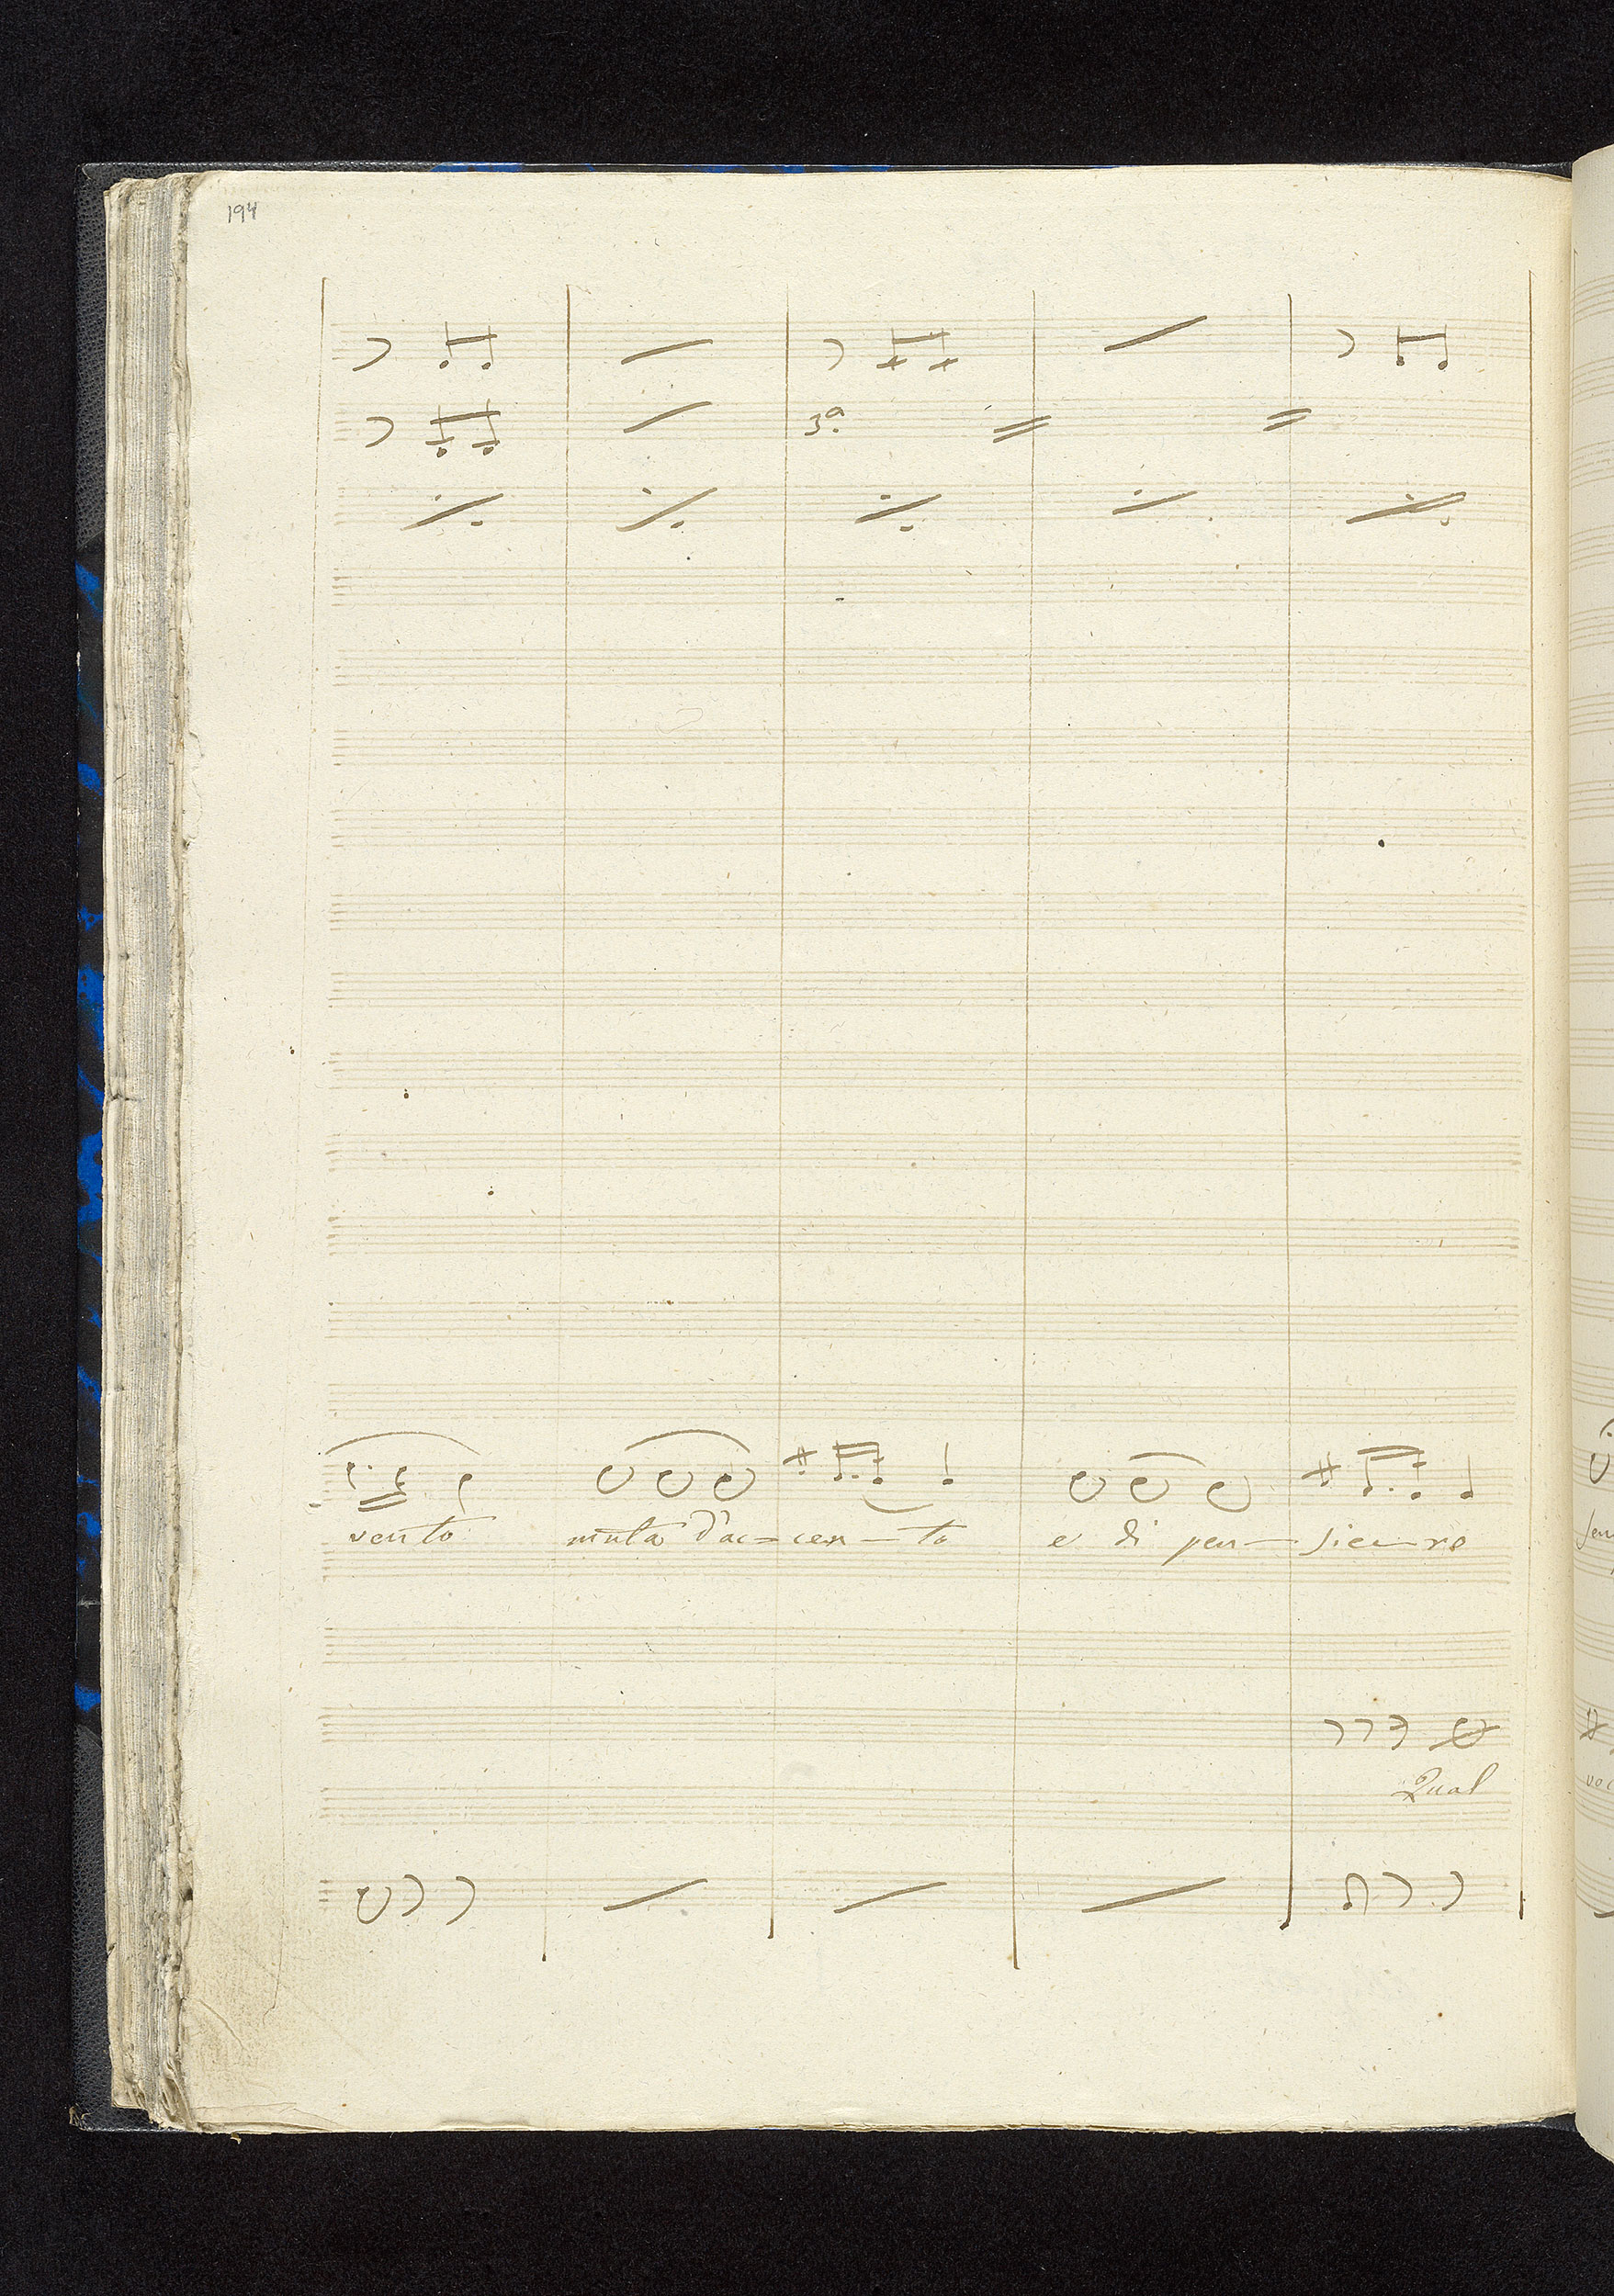 194
3ª
vento muta d'ac=cen-to e di pen-sie-re
Qual